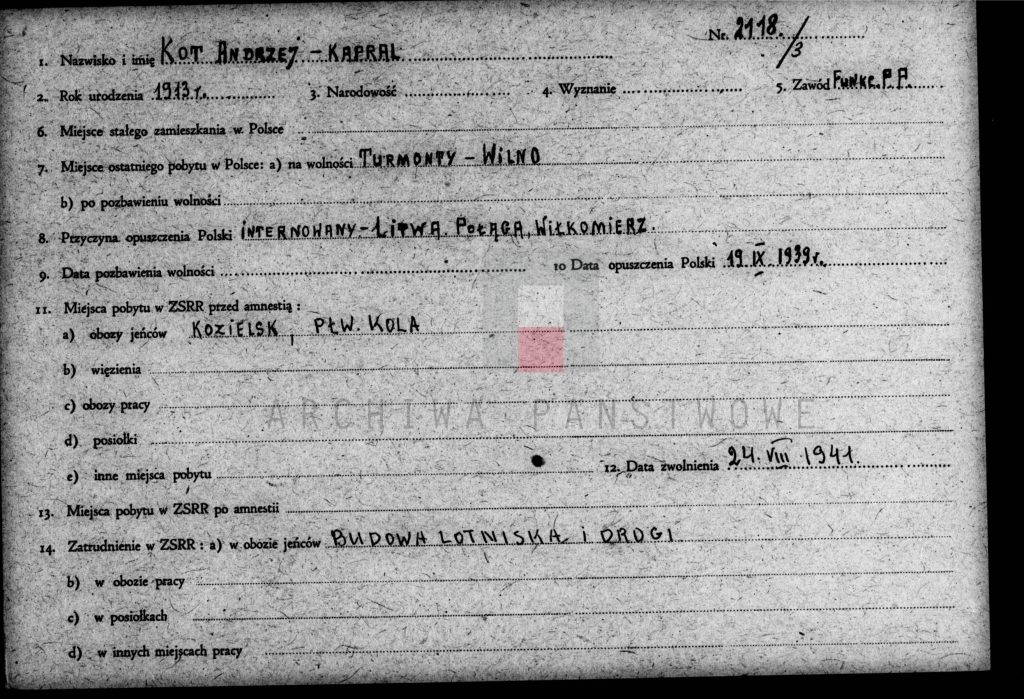 Nr. 2118./3
1. Nazwisko i imię KOT ANDRZEJ – KAPRAL
2. Rok urodzenia 1913 r. 3. Narodowość 4. Wyznanie 5. Zawód FUNKC. P.P.
6. Miejsce stałego zamieszkania w Polsce
7. Miejsce ostatniego pobytu w Polsce: a) na wolności TURMONTY – WILNO
b) po pozbawieniu wolności
8. Przyczyna opuszczenia Polski INTERNOWANY – LITWA POŁĄGA, WIŁKOMIERZ.
9. Data pozbawienia wolności 10 Data opuszczenia Polski 19. IX. 1939 r.
11. Miejsca pobytu w ZSRR przed amnestią :
a) obozy jeńców KOZIELSK, PŁW. KOLA
b) więzienia
c) obozy pracy
ARCHIWA PAŃSTWOWE
d) posiołki
e) inne miejsca pobytu 12. Data zwolnienia 24. VIII 1941.
13. Miejsca pobytu w ZSRR po amnestii
14. Zatrudnienie w ZSRR : a) w obozie jeńców BUDOWA LOTNISKA i DROGI
b) w obozie pracy
c) w posiołkach
d) w innych miejscach pracy